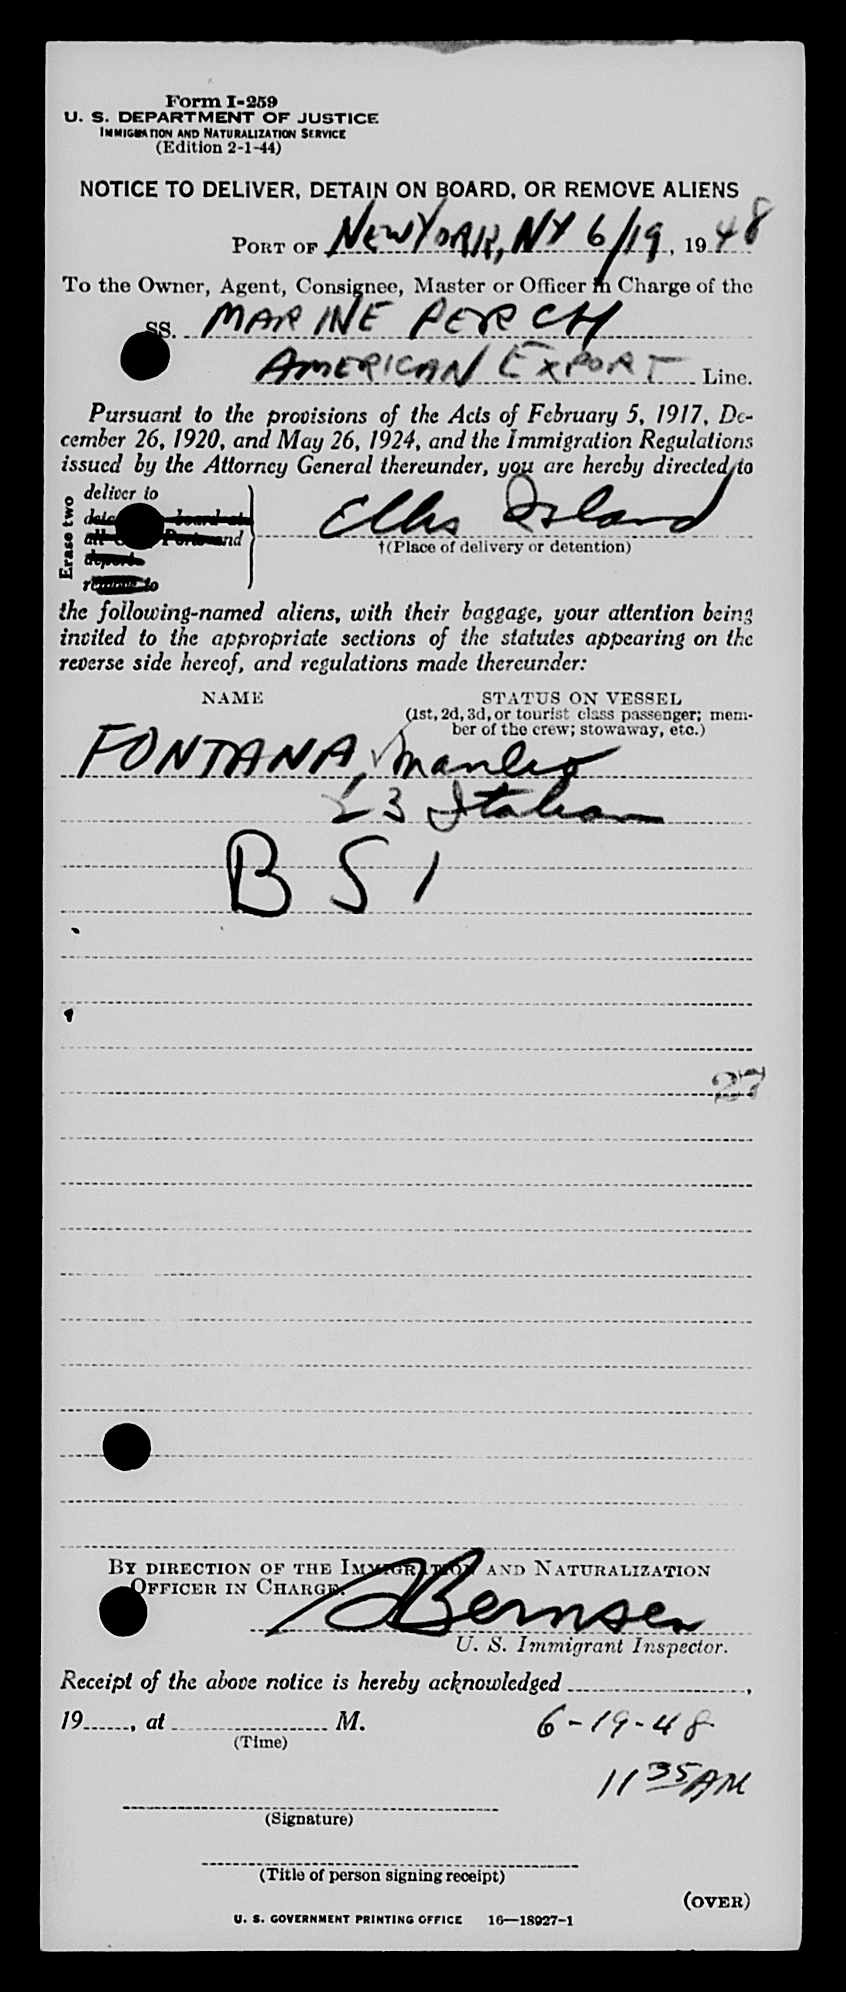 Form I-259
U. S. DEPARTMENT OF JUSTICE
IMMIGRATION AND NATURALIZATION SERVICE
(Edition 2-1-44)
NOTICE TO DELIVER, DETAIN ON BOARD, OR REMOVE ALIENS
PORT OF NEW YORK, NY 6/19, 1948
To the Owner, Agent, Consignee, Master or Officer in Charge of the
SS. MARINE PERCH
AMERICAN EXPORT Line.
Pursuant to the provisions of the Acts of February 5, 1917, De-
cember 26, 1920, and May 26, 1924, and the Immigration Regulations
issued by the Attorney General thereunder, you are hereby directed to
Erase two
deliver to
board at
all Ports and
deport
remove to
Ellis Island
†(Place of delivery or detention)
the following-named aliens, with their baggage, your attention being
invited to the appropriate sections of the statutes appearing on the
reverse side hereof, and regulations made thereunder:
NAME STATUS ON VESSEL
(1st, 2d, 3d, or tourist class passenger; mem-
ber of the crew; stowaway, etc.)
FONTANA, Manlio
23 Italian
B S I
27
BY DIRECTION OF THE IMMIGRATION AND NATURALIZATION
OFFICER IN CHARGE.
Bernsen
U. S. Immigrant Inspector.
Receipt of the above notice is hereby acknowledged ,
19 , at M. 6-19-48
(Time)
11 35 AM
(Signature)
(Title of person signing receipt)
(OVER)
U. S. GOVERNMENT PRINTING OFFICE 16—18927-1